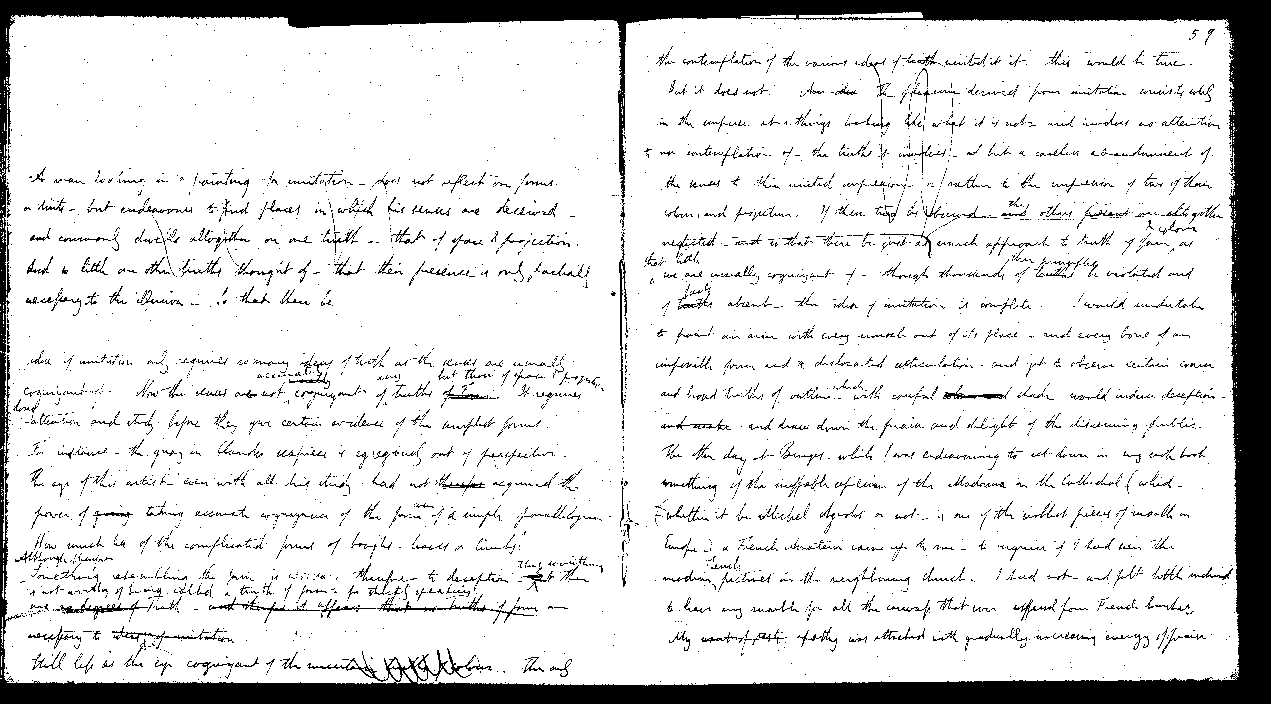 A man looking in a painting for imitation - does not reflect on forms
or tints - but endeavours to find places in which his senses are deceived -
and commonly dwells altogether on one truth - that of space & projection.
And so little are other truths thought of - that their presence is only, partially
necessary to the illusion - So that there be
idea of imitation only requires so many ideas of truth as the senses are usually
accurately ever but those of space & projection
cognizant of. Now the senses are not cognizant of truths of Form. It requires
attention and study before they give certain evidence of the simplest forms.
For instance - the quay in Claude's seapiece is egregiously out of perspective.
The eye of this artist - even with all his study - had not therefore acquired the
power of taking accurate cognizance of the form even of a simple parallelogram.
How much less of the complicated forms of boughs - leaves or limbs!
Although therefore
Something resembling the form is necessary to deception - this something
is not worthy of being called a truth of form - for strictly speaking
of truth - and therefore it appears that no truths of form are
necessary to imitation
Still less is the eye cognizant of the colour. Thus only
59
the contemplation of the various ideas of truth united it it. this would be true.
But it does not. The pleasure derived from imitation consists only
in the surprise at a things looking like what it is not - and involves no attention
to nor contemplation of - the truths it involves - but a careless abandonment of
the senses to their united impression or rather to the impression of two of them
colour, and projection. If these two be observed - the others are altogether
colour
neglected - and so that there be just as much approach to truth of form, as
that both their principles
we are usually cognizant of - though thousands of truths be violated and
facts
of truths absent - the idea of imitation is complete. I would undertake
to paint an arm with every muscle out of its place - and every bone of an
impossible form and a dislocated articulation - and yet to observe certain coarse
which
and broad truths of outline - with careful shade would induce deception -
and make and draw down the praise and delight of the discerning public.
The other day at Bruges - while I was endeavouring to set down in my note book
something of the ineffable expression of the Madonna in the Cathedral (which -
whether it be Michael Angelo's or not - is one of the noblest pieces of marble in
Europe) a French Amateur came up to me - to inquire if I had seen the
French
modern pictures in the neighbouring church. I had not - and felt little inclined
to leave my marble for all the canvass that ever suffered from French brushes
My apathy was attacked with gradually increasing energy of praise